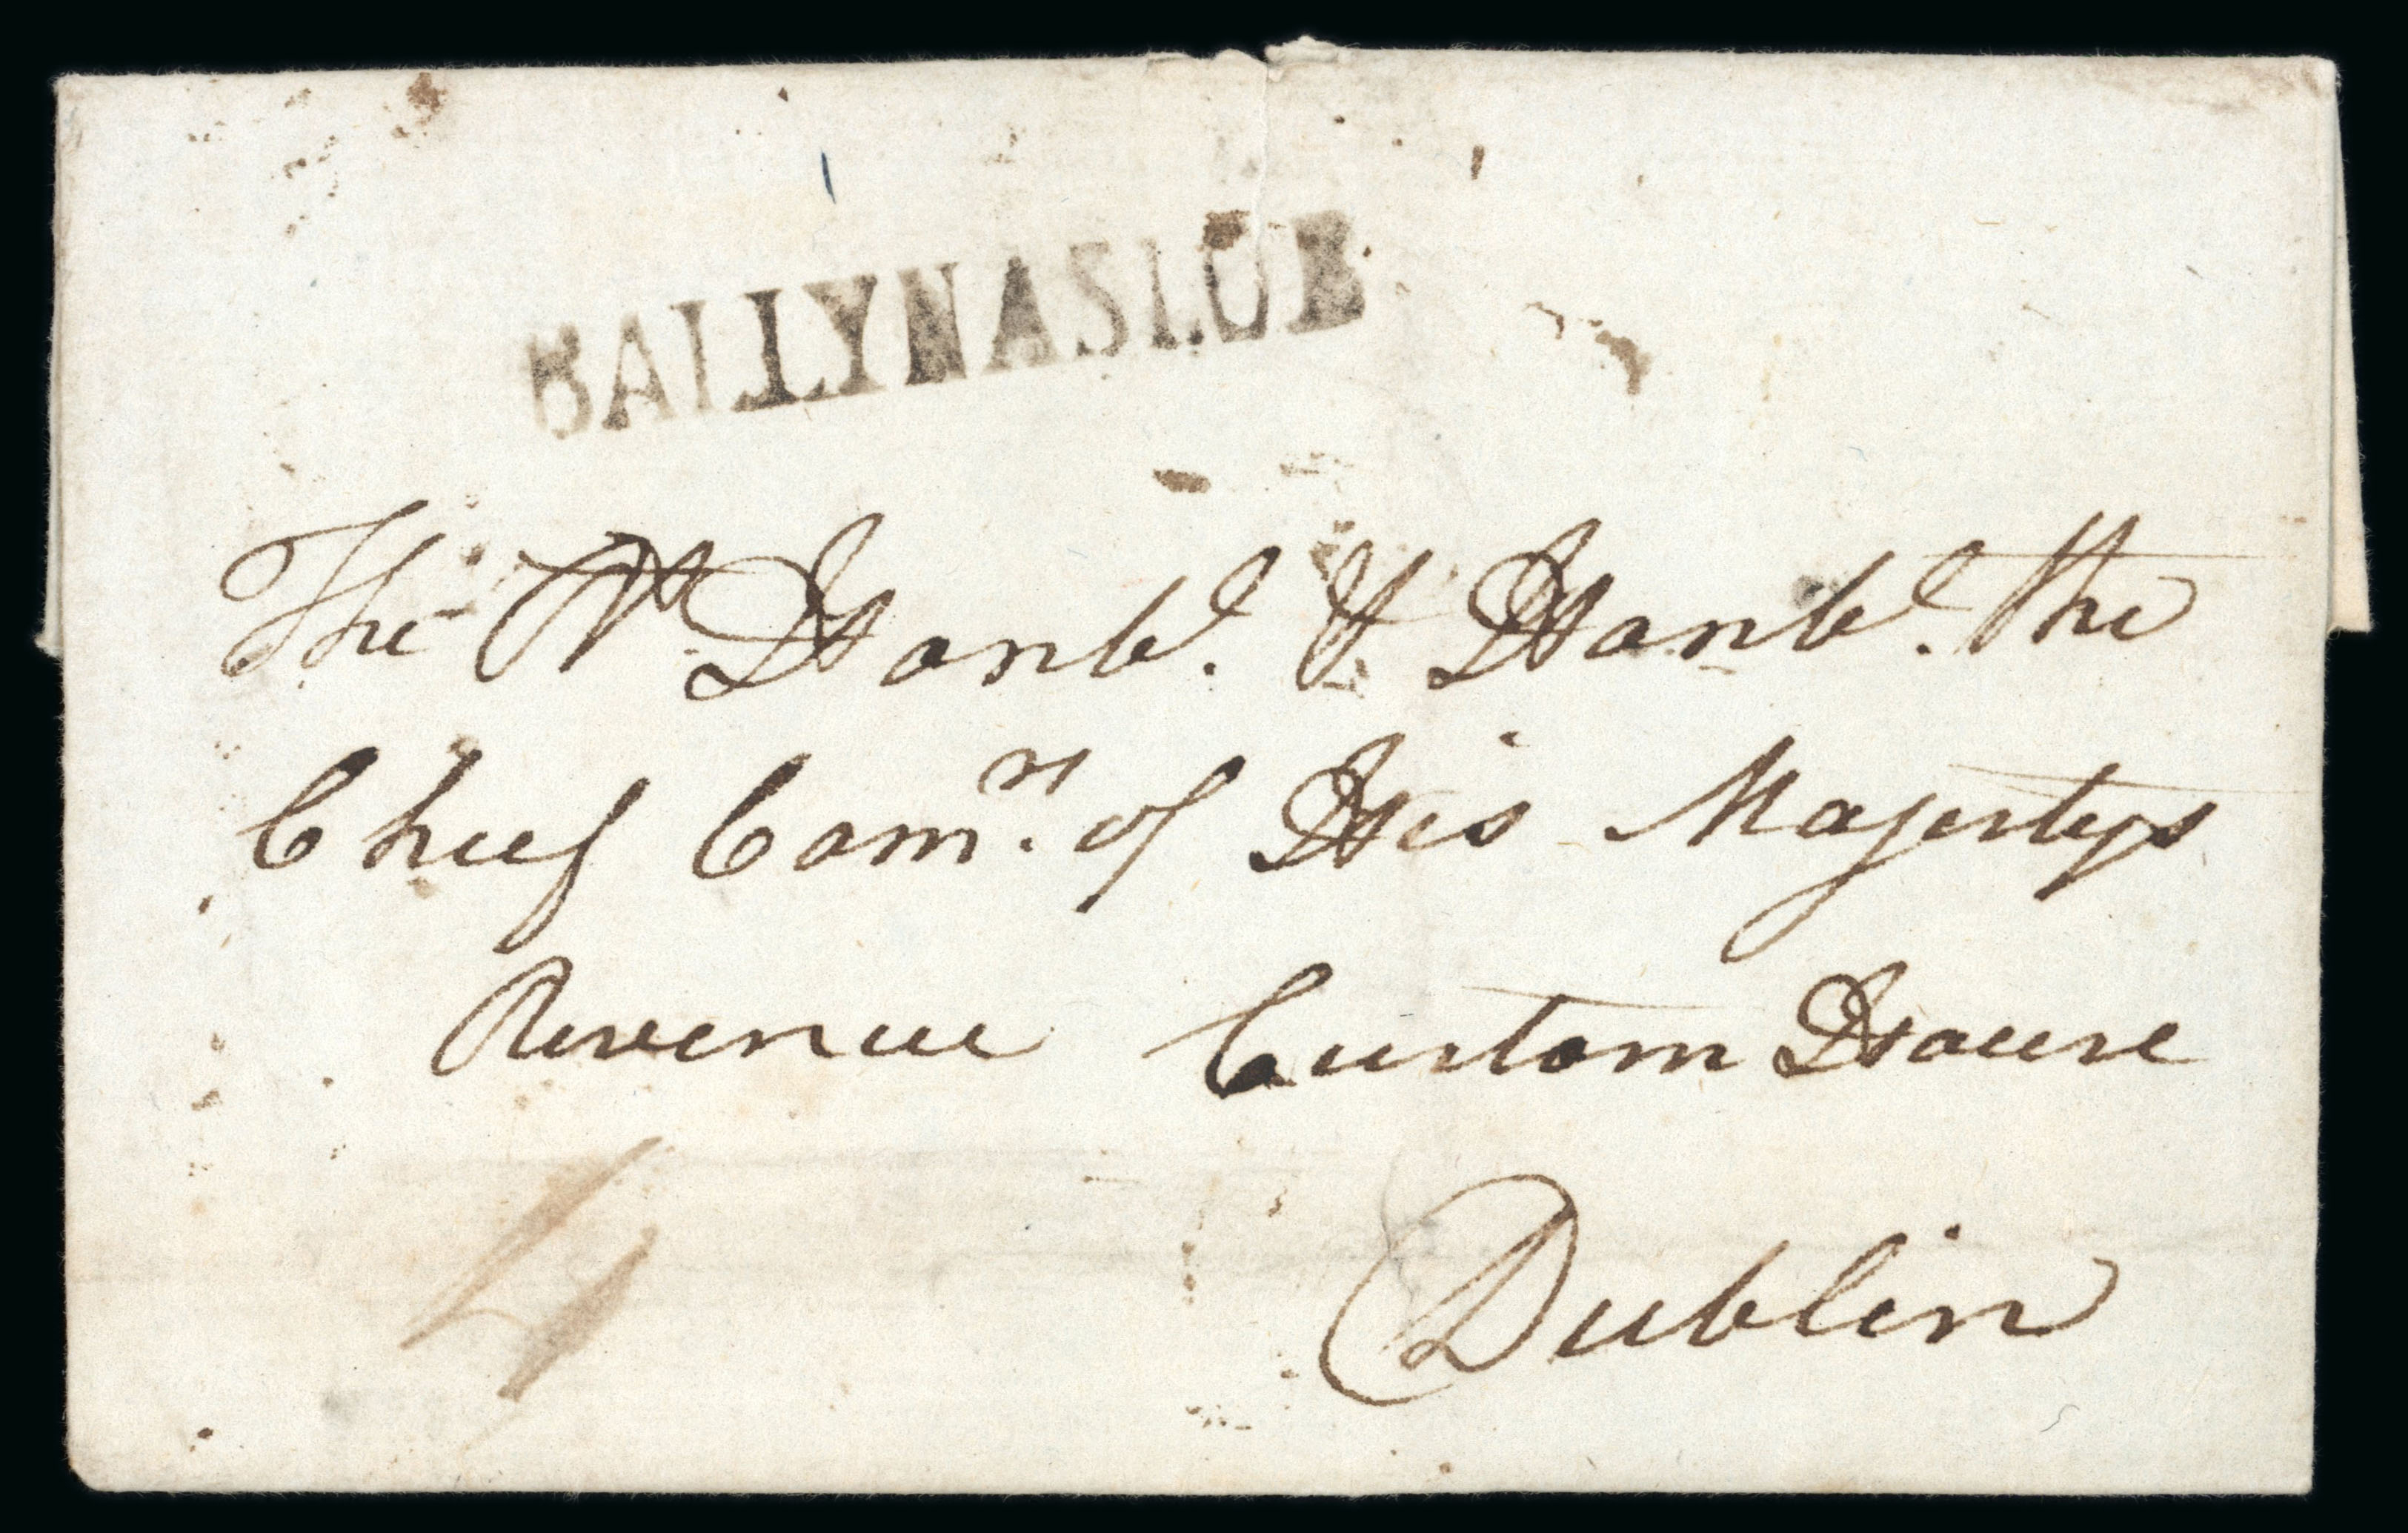 BALLYNASLOE
The Rt. Honble. & Honble. the
Chief Comrs. of His Majestys
Revenue Custom House
4
Dublin